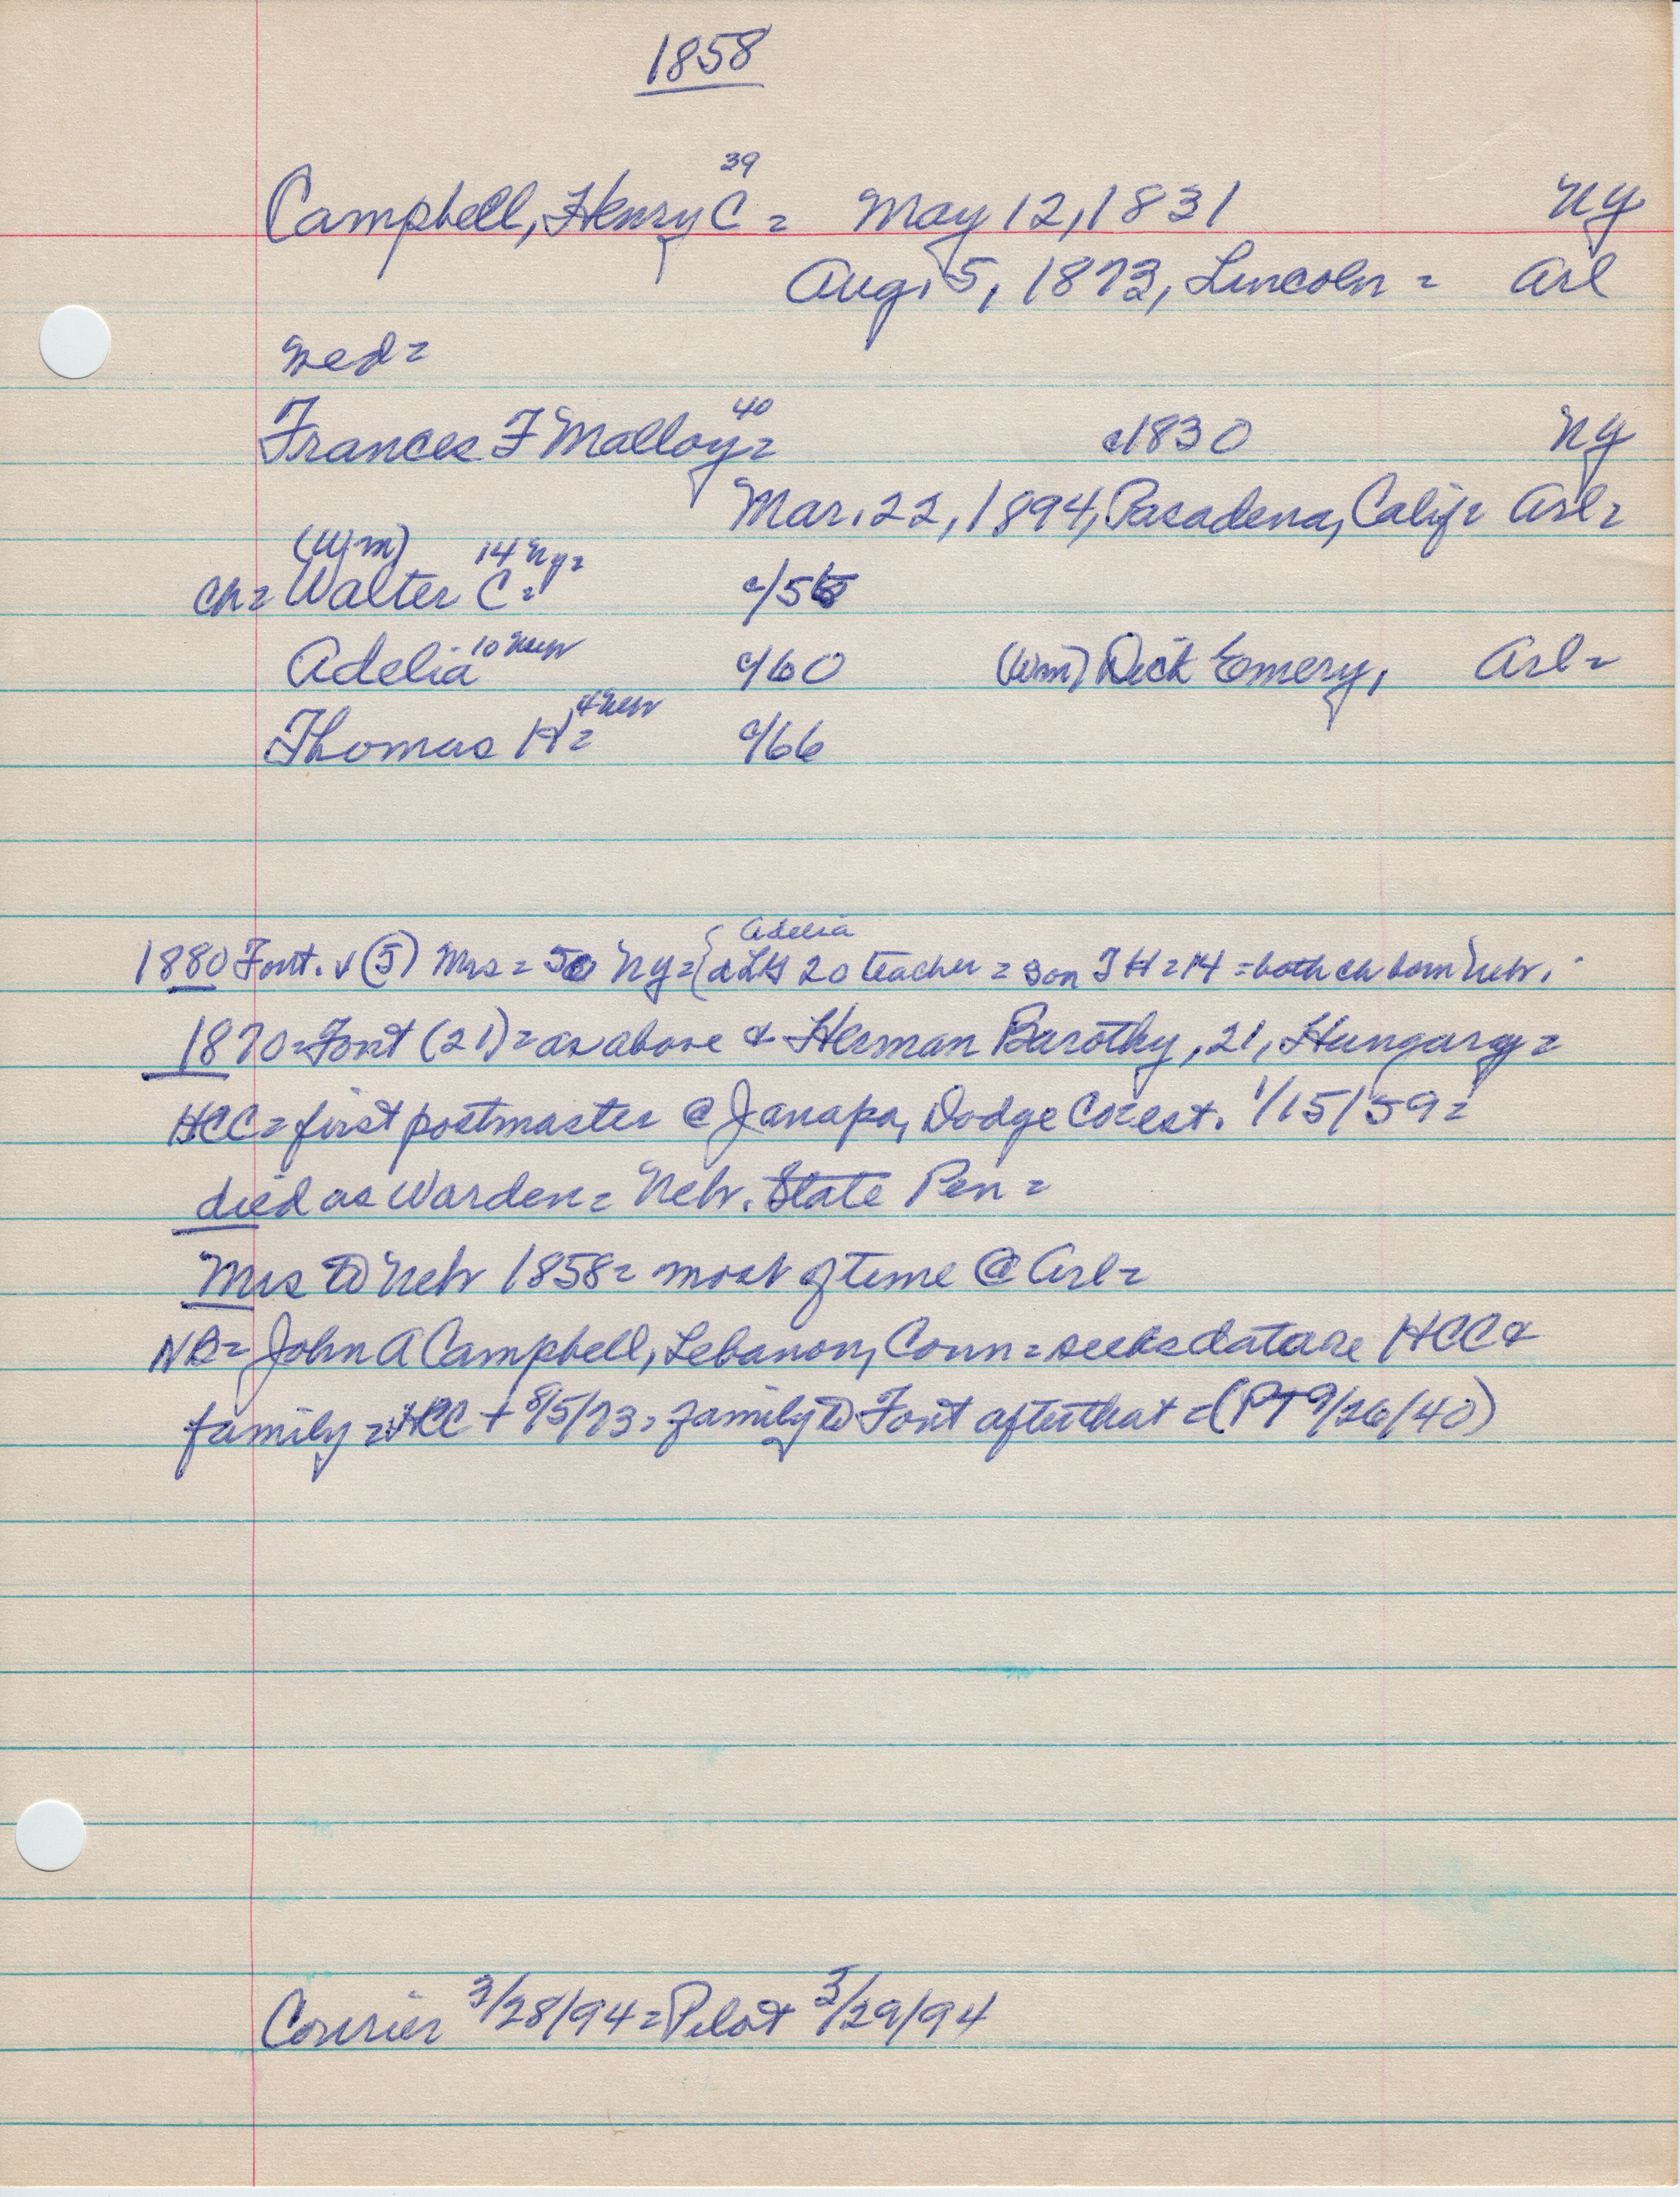 1858
39
Campbell, Henry C = May 12, 1831 NY
Aug. 5, 1873, Lincoln = Arl
Wed =
40
Frances F Malloy = c1830 NY
Mar. 22, 1894, Pasadena, Calif = Arl =
(Wm) 14 NY =
Ch = Walter C = c/56
10 Nebr
Adelia c/60 (Wm) Dick Emery, Arl =
4 Nebr
Thomas H = c/66
Adelia
1880 Font. v (5) Mrs = 50 NY = { 20 teacher = son TH = 14 = both ch born Nebr.
1870 = Font (21) = as above & Herman Barothy, 21, Hungary =
HCC = first postmaster @ Janapa, Dodge Co = est. 1/15/59 =
died as Warden = Nebr. State Pen =
Mrs to Nebr 1858 = most of time @ Arl =
NB = John A Campbell, Lebanon, Conn = seeks data re HCC &
family = HCC + 8/5/73, family to Font after that = (PT 9/26/40)
Courier 3/28/94 = Pilot 3/29/94